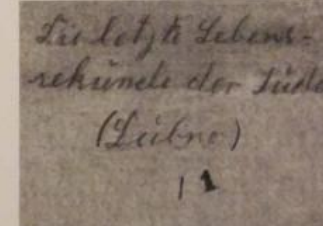 Die letzte Lebens-
sekunde der Jude
(Leibne)
11